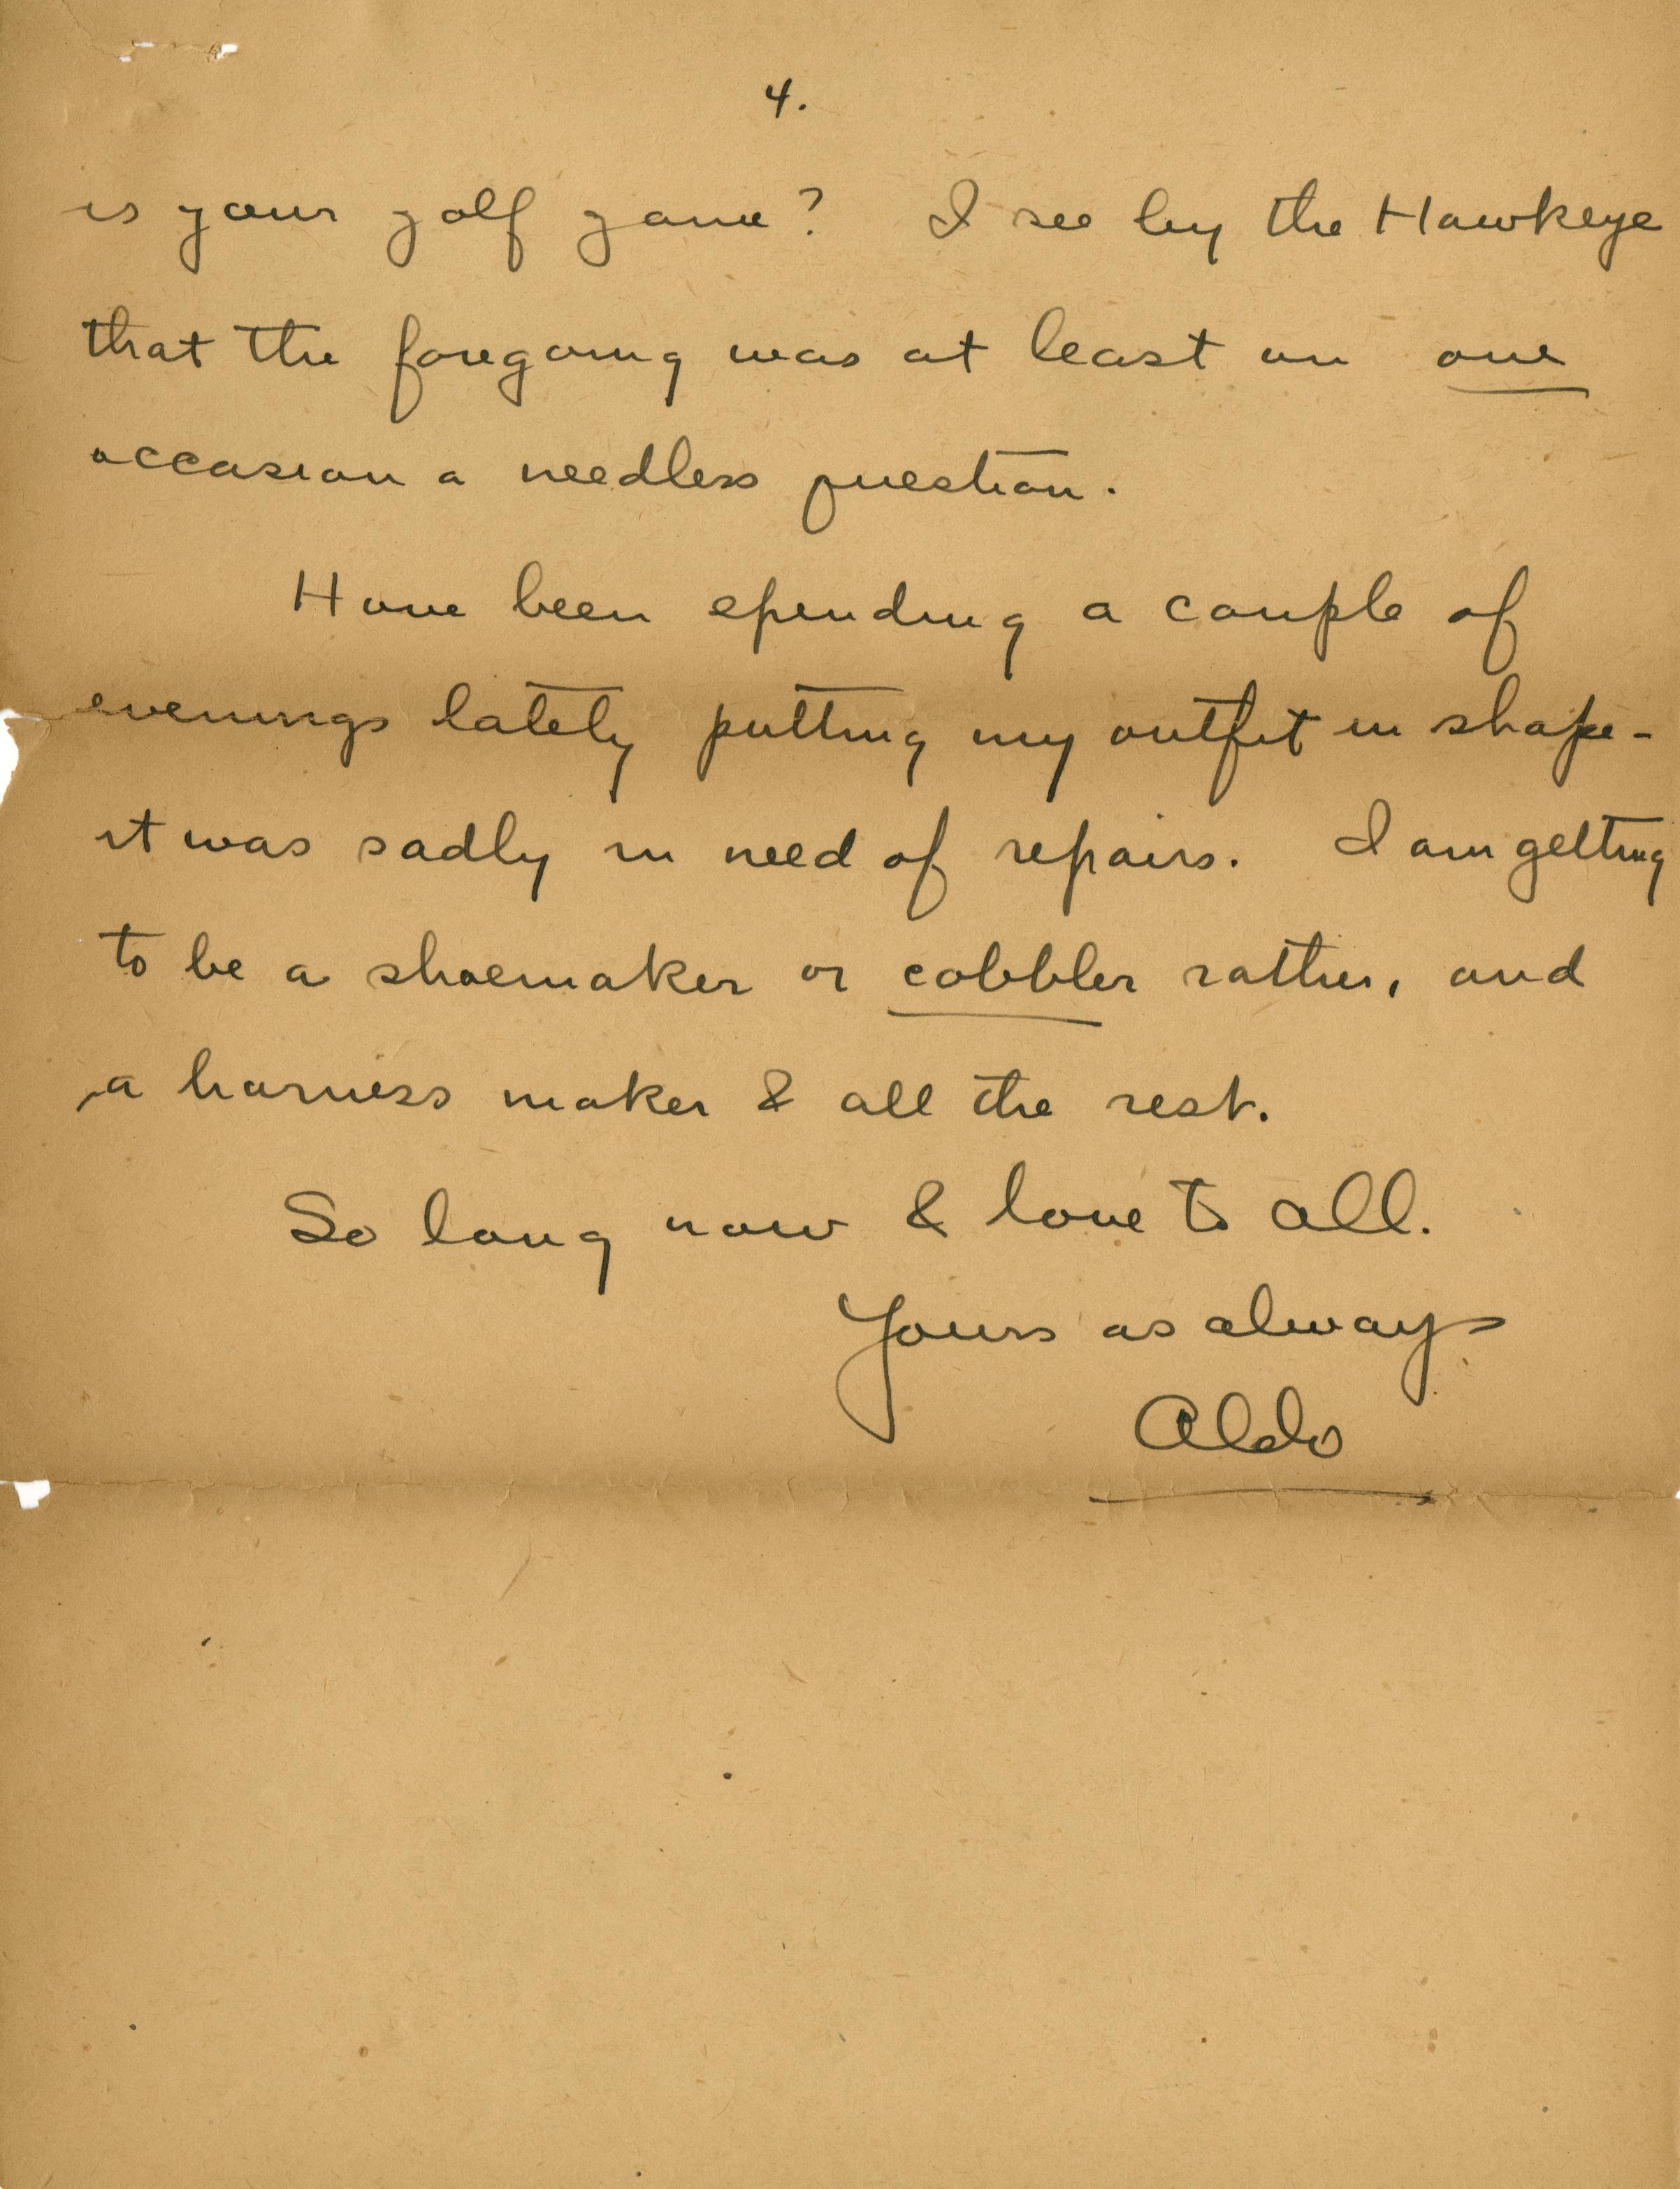 4.
is your golf game? I see by the Hawkeye
that the foregoing was at least on one
occasion a needless question.
Have been spending a couple of
evenings lately putting my outfit in shape -
it was sadly in need of repairs. I am getting
to be a shoemaker or cobbler rather, and
a harness maker & all the rest.
So long now & love to all.
Yours as always
Aldo